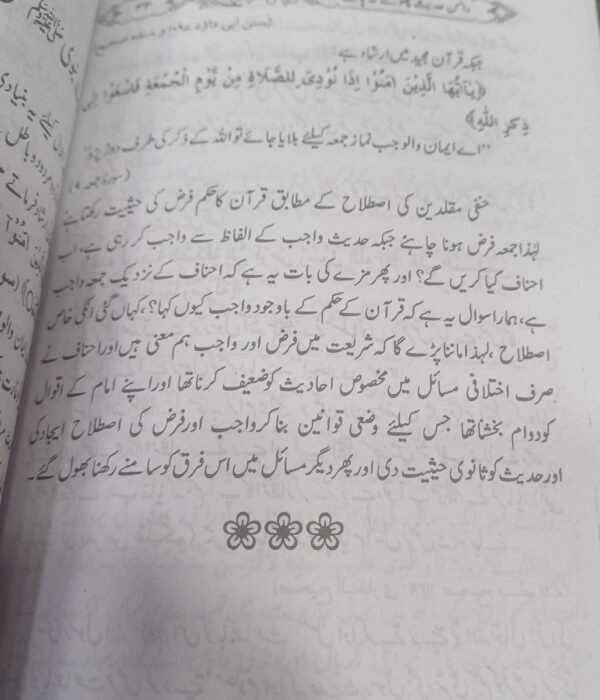 ۳۳
(سنن ابی داؤد
جبکہ قرآن مجید میں ارشاد ہے:
﴿يٰۤاَيُّهَا الَّذِيْنَ اٰمَنُوْا اِذَا نُوْدِيَ لِلصَّلَاةِ مِنْ يَّوْمِ الْجُمُعَةِ فَاسْعَوْا اِلٰى
ذِكْرِ اللّٰهِ﴾
"اے ایمان والو جب نماز جمعہ کیلئے بلایا جائے تو اللہ کے ذکر کی طرف دوڑ پڑو"
(سورۃ جمعہ ۹)
حنفی مقلدین کی اصطلاح کے مطابق قرآن کا حکم فرض کی حیثیت رکھتا ہے
لہٰذا جمعہ فرض ہونا چاہئے جبکہ حدیث واجب کے الفاظ سے واجب کر رہی ہے، اب
احناف کیا کریں گے؟ اور پھر مزے کی بات یہ ہے کہ احناف کے نزدیک جمعہ واجب
ہے، ہمارا سوال یہ ہے کہ قرآن کے حکم کے باوجود واجب کیوں کہا؟، کہاں گئی انکی خاص
اصطلاح، لہٰذا ماننا پڑے گا کہ شریعت میں فرض اور واجب ہم معنی ہیں اور احناف نے
صرف اختلافی مسائل میں مخصوص احادیث کو ضعیف کرنا تھا اور اپنے امام کے اقوال
کو دوام بخشنا تھا جس کیلئے وضعی قوانین بنا کر واجب اور فرض کی اصطلاح ایجاد کی
اور حدیث کو ثانوی حیثیت دی اور پھر دیگر مسائل میں اس فرق کو سامنے رکھنا بھول گئے۔